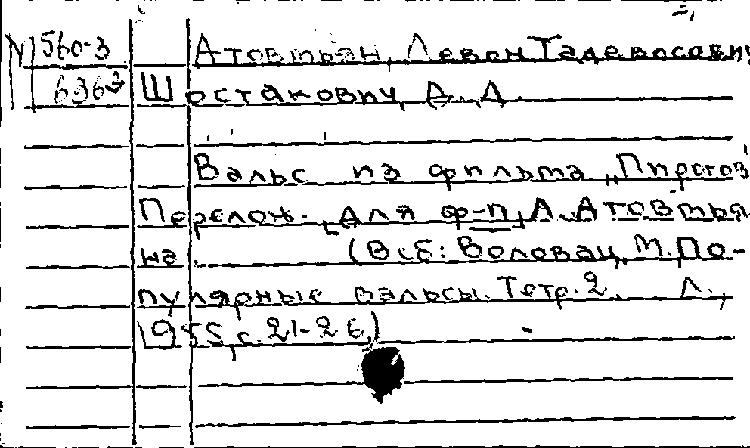 N 560-3 Атовмьян, Левон Тадевосович
6363 Шостакович, Д. Д.
Вальс из фильма „Пирогов"
Перелож. для ф-п Л. Атовмья
на. (В сб: Воловац, М. По-
пулярные вальсы. Тетр. 2. Л.,
1955, с. 21-26)